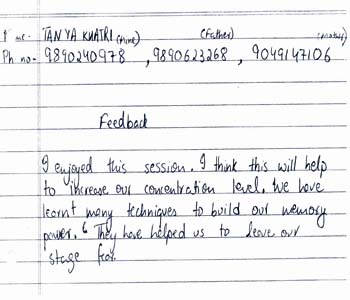 me - TANYA KHATRI (Mine) (Father) (Mother)
Ph no- 9890240978 , 9890623268 , 9049147106
Feedback
I enjoyed this session. I think this will help
to increase our concentration level. We have
learnt many techniques to build our memory
power. They have helped us to leave our
stage fear.